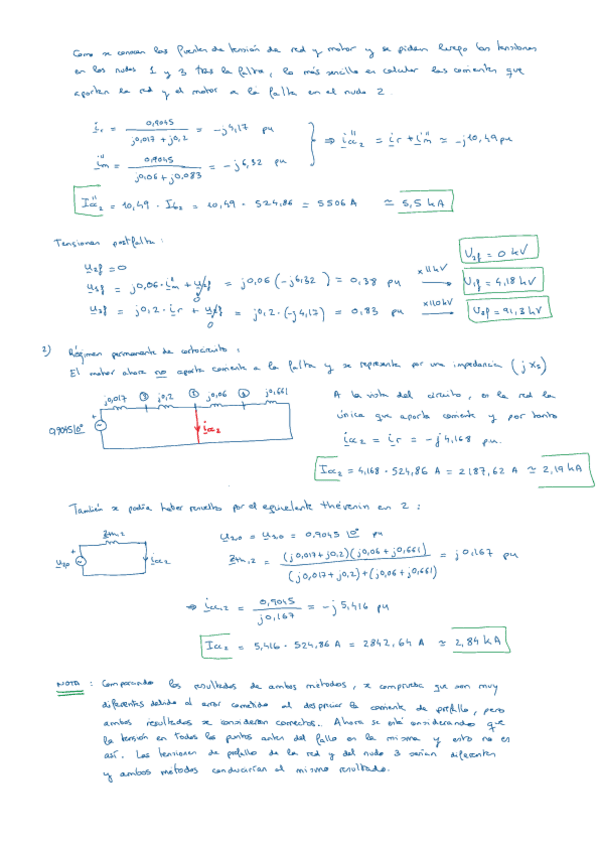 Como se conocen las fuentes de tensión de red y motor y se piden luego las tensiones
en los nudos 1 y 3 tras la falta, lo más sencillo es calcular las corrientes que
aportan la red y el motor a la falta en el nudo 2.
ir = 0,9045 / (j0,017 + j0,2) = -j4,17 pu
i"m = 0,9045 / (j0,06 + j0,083) = -j6,32 pu
⇒ i"cc2 = ir + i"m ≃ -j10,49 pu
I"cc2 = 10,49 · Ib2 = 10,49 · 524,86 = 5506 A ≃ 5,5 kA
Tensiones postfalta:
u2f = 0
U2f = 0 kV
u1f = j0,06 · i"m + u2f = j0,06 (-j6,32) = 0,38 pu ×11kV → U1f = 4,18 kV
u3f = j0,2 · ir + u2f = j0,2 · (-j4,17) = 0,83 pu ×110kV → U3f = 91,3 kV
2) Régimen permanente de cortocircuito:
El motor ahora no aporta corriente a la falta y se representa por una impedancia (jXs)
j0,017 3 j0,2 2 j0,06 1 j0,661
0,9045|0° icc2
A la vista del circuito, es la red la
única que aporta corriente y por tanto
icc2 = ir = -j4,168 pu.
Icc2 = 4,168 · 524,86 A = 2187,62 A ≃ 2,19 kA
También se podía haber resuelto por el equivalente thévenin en 2:
Zth,2
u2,0 icc2
u2,0 = u2,0 = 0,9045 |0° pu
Zth,2 = (j0,017+j0,2)(j0,06+j0,661) / (j0,017+j0,2)+(j0,06+j0,661) = j0,167 pu
⇒ icc,2 = 0,9045 / j0,167 = -j5,416 pu
Icc2 = 5,416 · 524,86 A = 2842,64 A ≃ 2,84 kA
NOTA: Comparando los resultados de ambos métodos, se comprueba que son muy
diferentes debido al error cometido al despreciar la corriente de prefallo, pero
ambos resultados se consideran correctos. Ahora se está considerando que
la tensión en todos los puntos antes del fallo es la misma y esto no es
así. Las tensiones de prefallo de la red y del nudo 3 serían diferentes
y ambos métodos conducirían al mismo resultado.